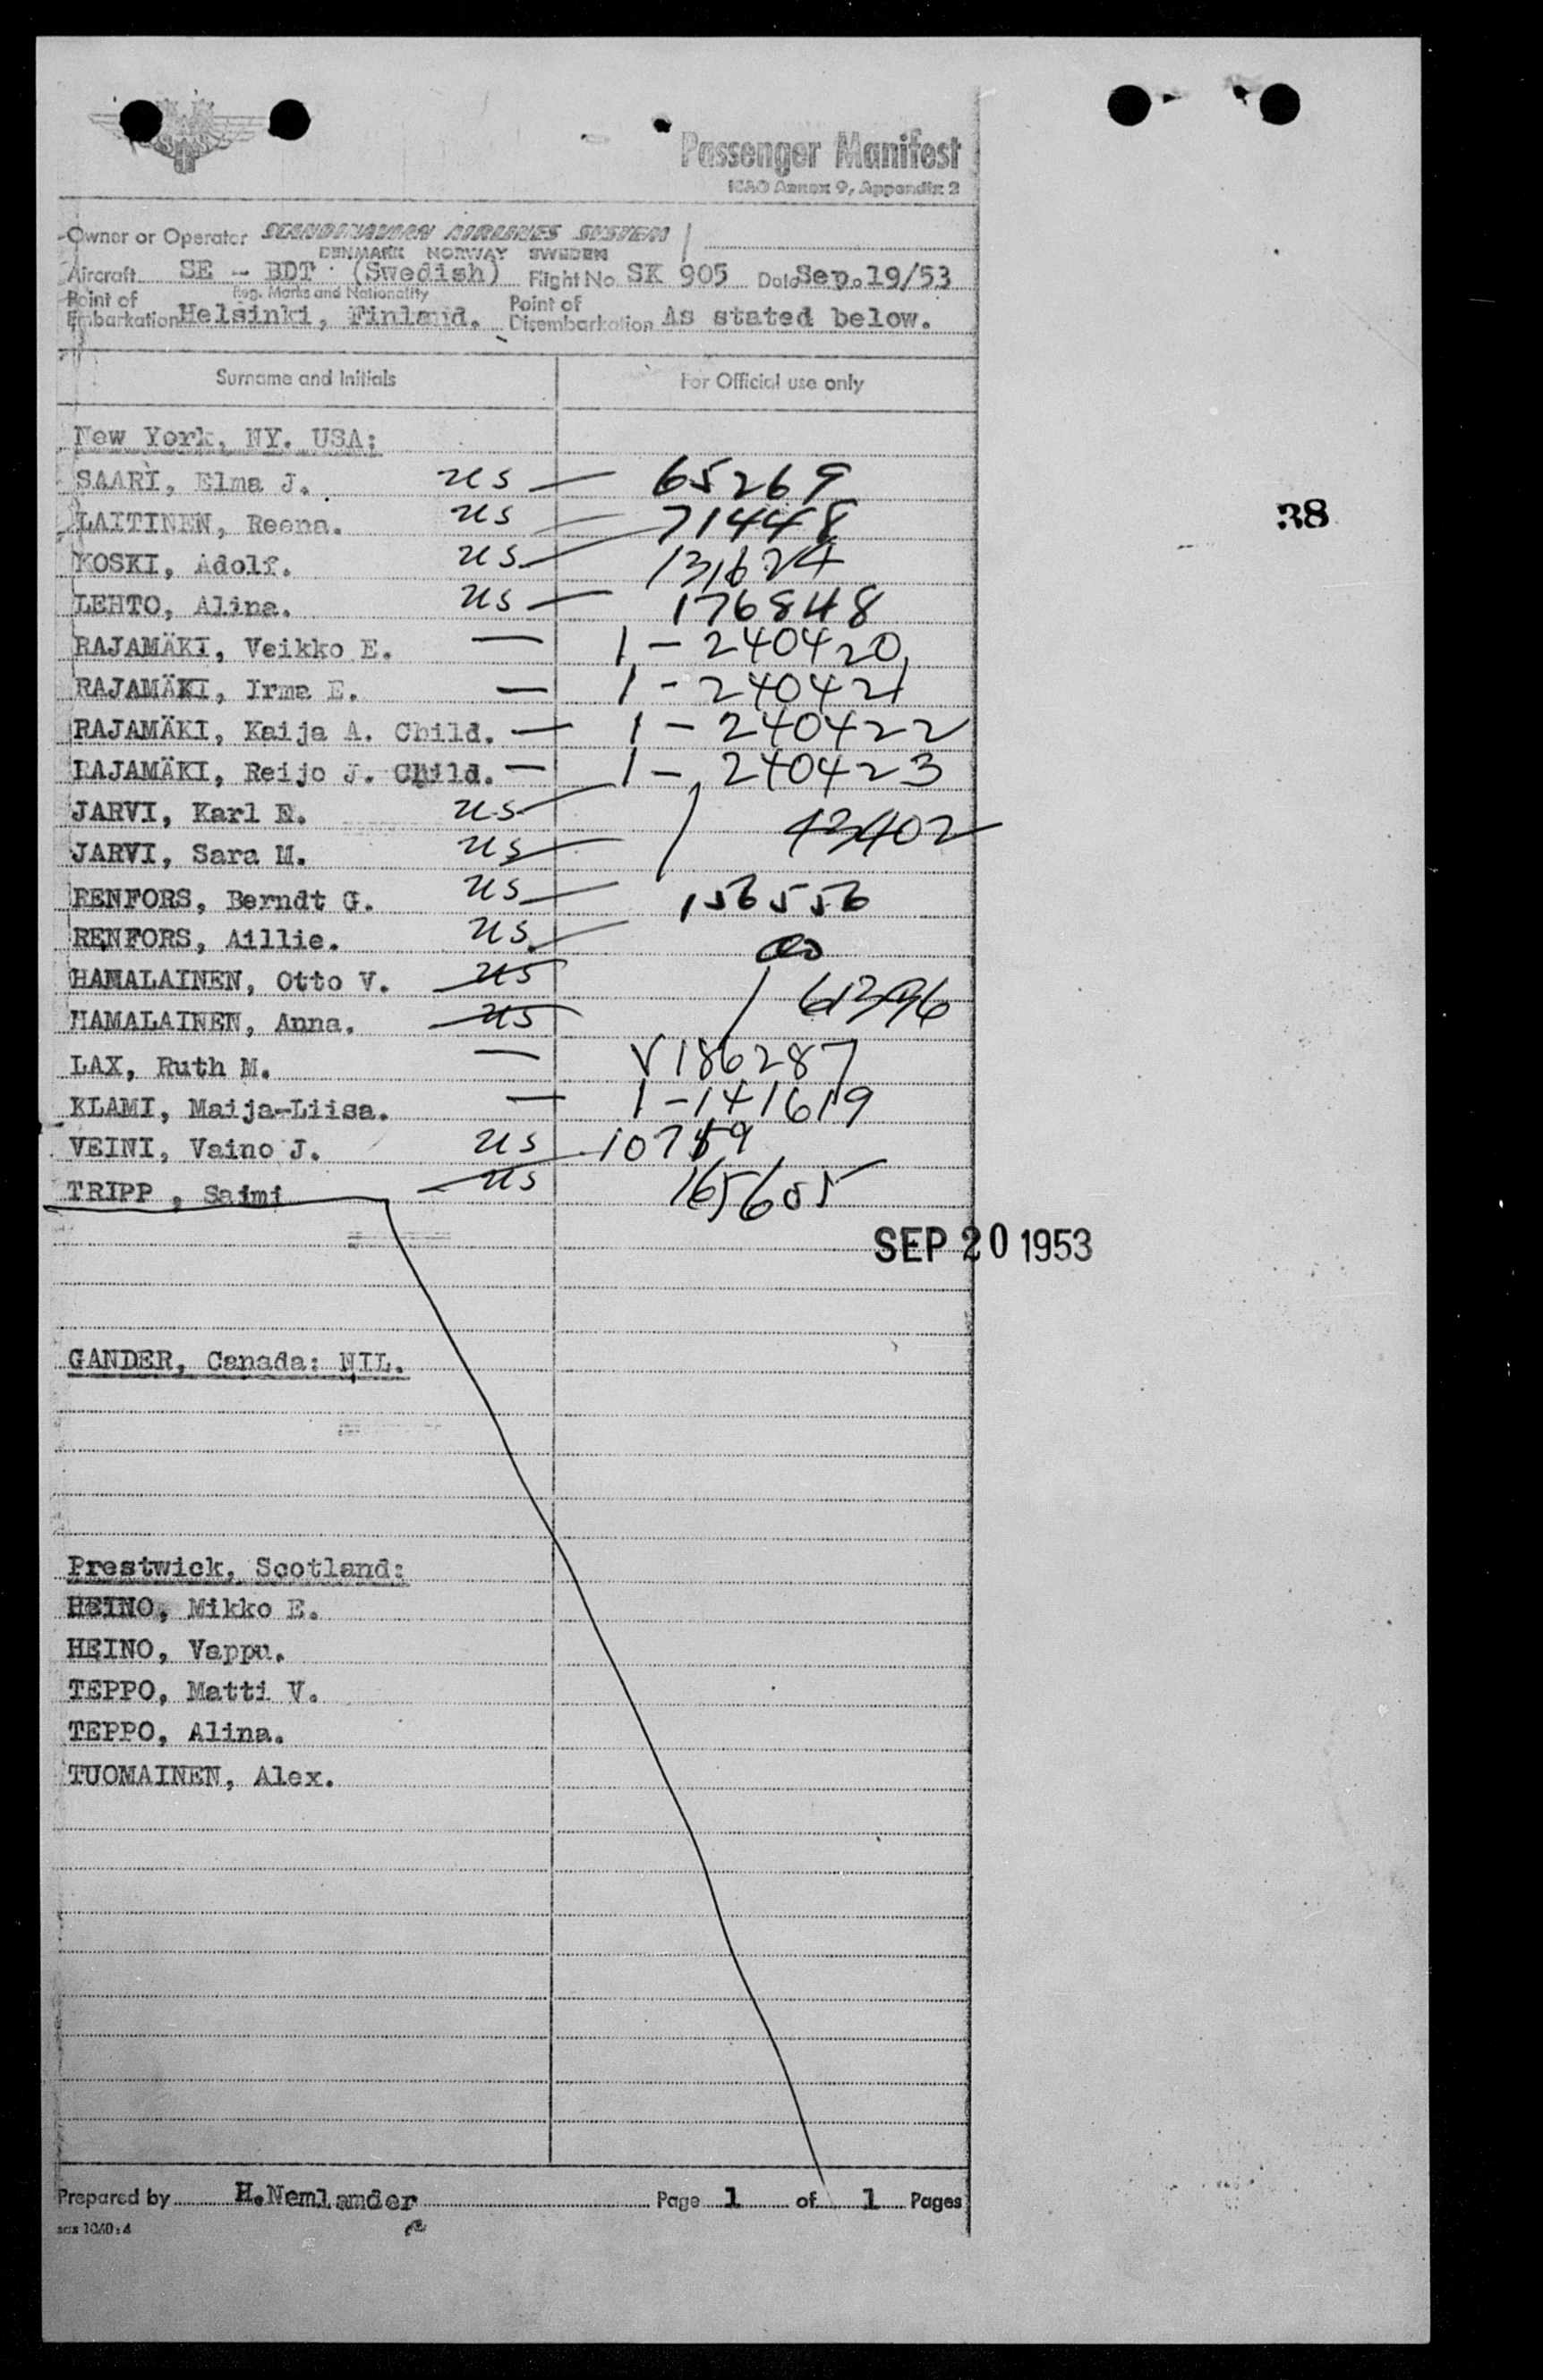 Passenger Manifest
ICAO Annex 9, Appendix 2
Owner or Operator SCANDINAVIAN AIRLINES SYSTEM
DENMARK NORWAY SWEDEN
Aircraft SE - BDT (Swedish) Flight No SK 905 Date Sep. 19/53
Reg. Marks and Nationality
Point of Embarkation Helsinki, Finland. Point of Disembarkation As stated below.
Surname and Initials For Official use only
New York, NY. USA:
SAARI, Elma J. US — 65269
38
LAITINEN, Reena. US — 71448
KOSKI, Adolf. US — 131624
LEHTO, Alina. US — 176848
RAJAMÄKI, Veikko E. — 1-240420
RAJAMÄKI, Irma E. — 1-240421
RAJAMÄKI, Kaija A. Child. — 1-240422
RAJAMÄKI, Reijo J. Child. — 1-240423
JARVI, Karl E. US
43402
JARVI, Sara M. US
RENFORS, Berndt G. US — 156556
RENFORS, Aillie. US
HAMALAINEN, Otto V. US
61396
HAMALAINEN, Anna. US
LAX, Ruth M. — V186287
KLAMI, Maija-Liisa. — 1-141619
VEINI, Vaino J. US 10759
TRIPP, Saimi US 165605
SEP 20 1953
GANDER, Canada: NIL.
Prestwick, Scotland:
HEINO, Mikko E.
HEINO, Vappu.
TEPPO, Matti V.
TEPPO, Alina.
TUOMAINEN, Alex.
Prepared by H.Nemlander Page 1 of 1 Pages